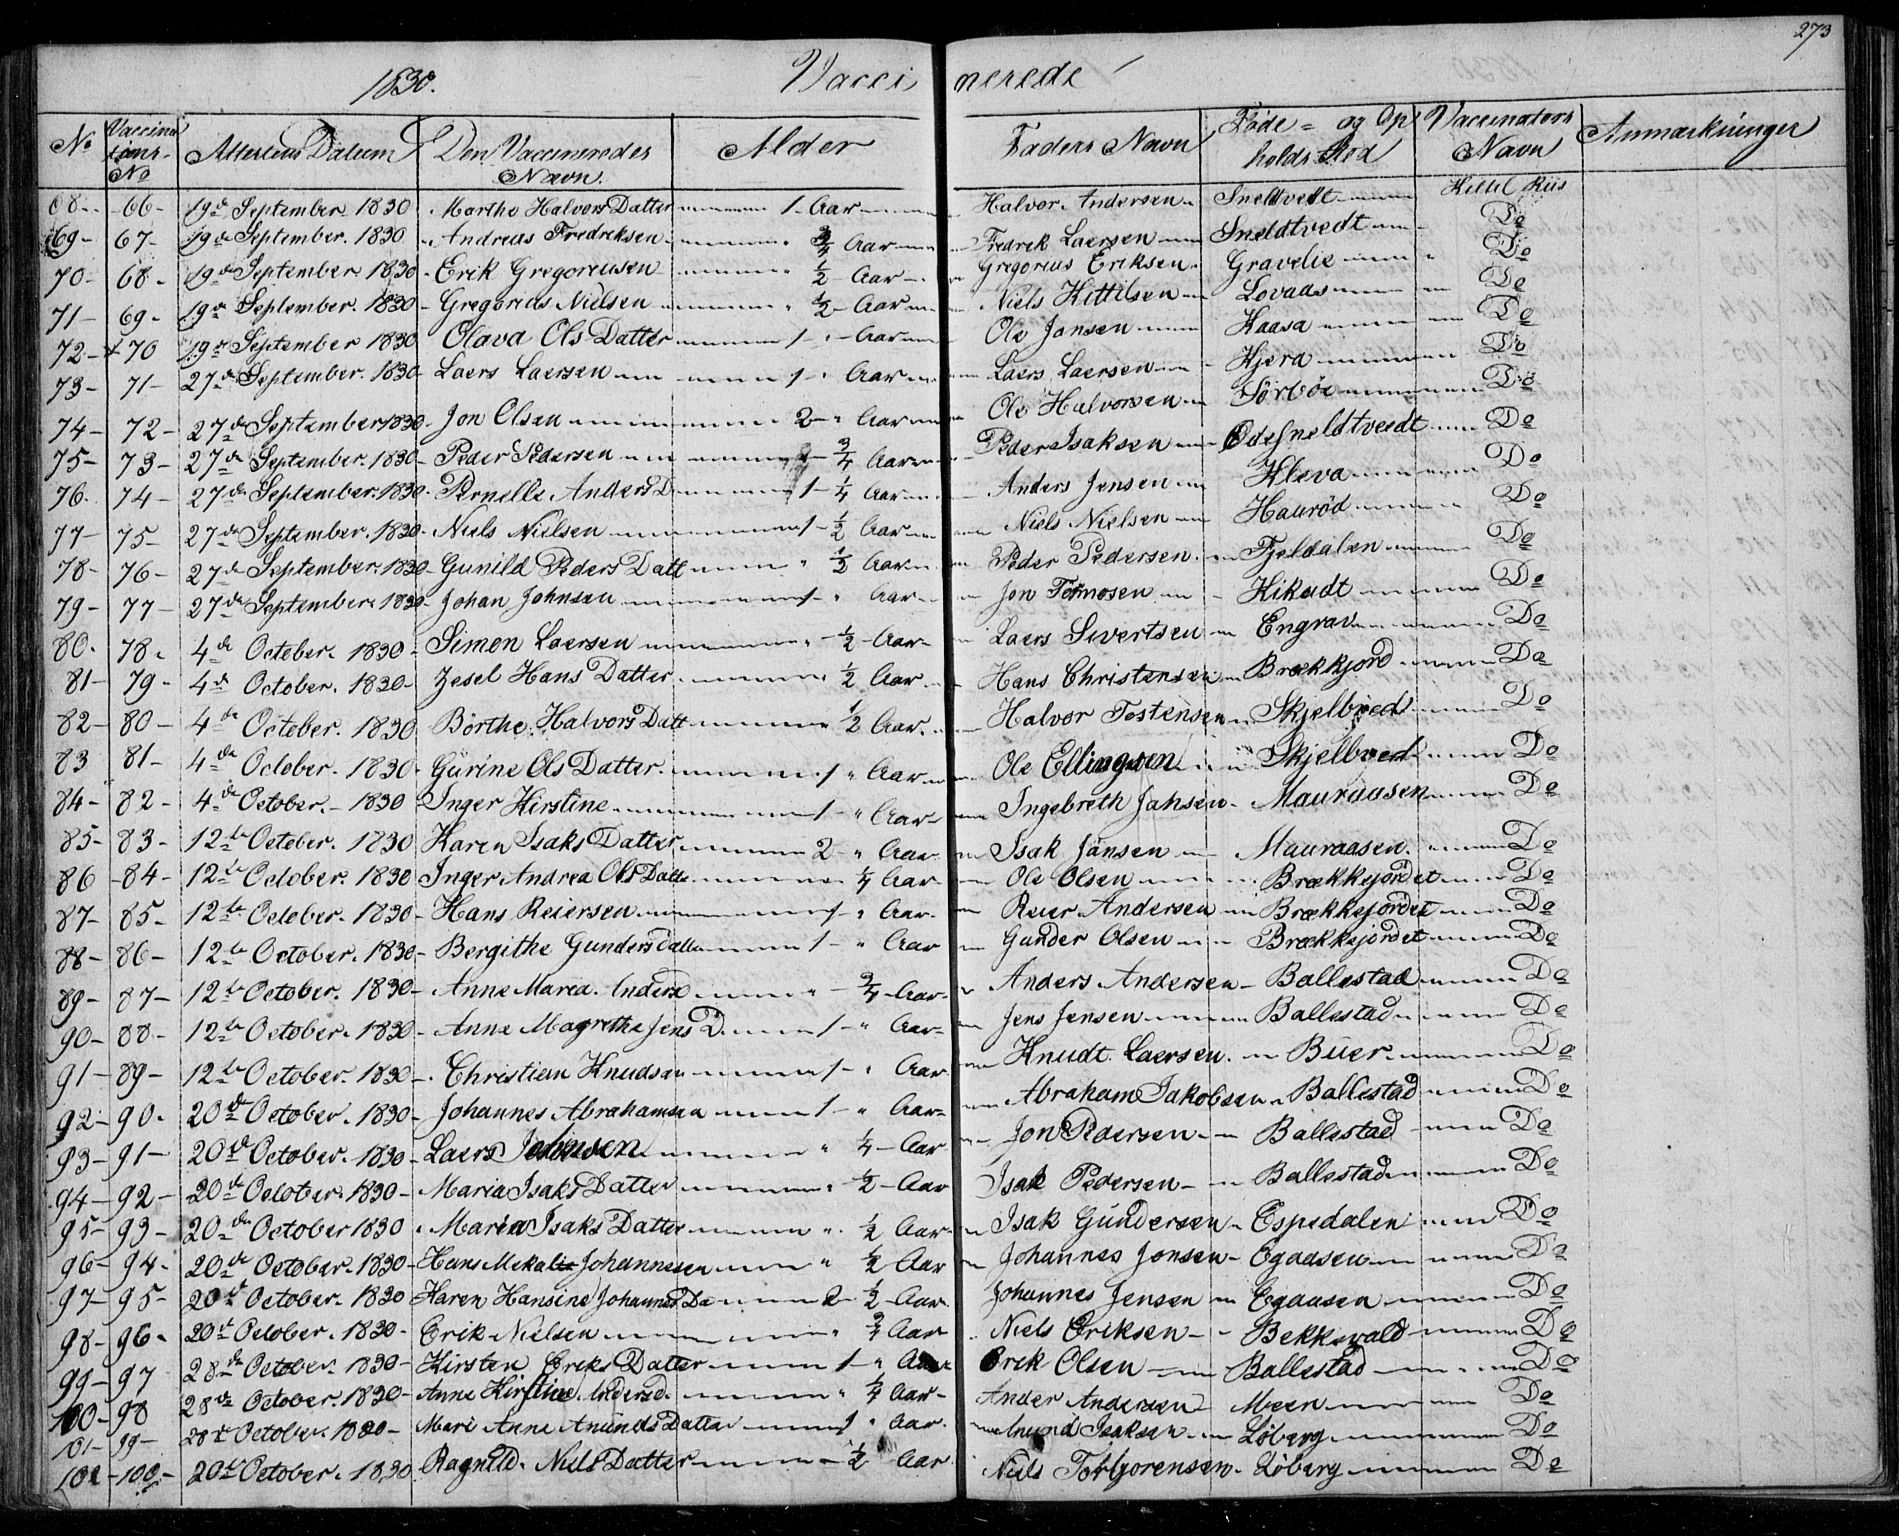 273
1830. Vaccinerede
No Vaccinations-No Attestens Datum Den Vaccineredes Navn. Alder Faders Navn Føde- og Opholds Sted Vaccinators Navn Anmærkninger
68 - 66 - 19de September 1830 Marthe Halvors Datter 1 - Aar Halvor Andersen Sneldtvedt Kittel Riis
69 - 67 - 19de September. 1830 Andreas Fredriksen 3/4 Aar Fredrek Laersen Sneldtvedt Do
70 - 68 - 19de September 1830 Erik Gregoriusen 1/2 Aar Gregorius Eriksen Gravelie Do
71 - 69 - 19de September. 1830 Gregorius Nielsen 1/2 Aar Niels Kittilsen Lovaas Do
72 - 70 19de September 1830 Olava Ols Datter 1 - Aar Ole Jansen Kaasa Do
73 - 71 - 27de September. 1830 Laers Laersen 1 - Aar Laers Laersen Kjera Do
74 - 72 - 27de September 1830 Jon Olsen 2 - Aar Ole Halvorsen Sørbøe Do
75 - 73 - 27de September. 1830 Peder Pedersen 3/4 Aar Peder Isaksen Ødesneldtvedt Do
76. 74 - 27de September. 1830 Pernelle Anders D 1 - 1/4 Aar Anders Jensen Kleva Do
77 - 75 - 27de September. 1830 Niels Nielsen 1 - 1/2 Aar Niels Nielsen Haurød Do
78 - 76 - 27de September. 1830 Gunild Peders Datt 1/2 Aar Peder Pedersen Fjeldalen Do
79 - 77 - 27de September. 1830 Johan Johnsen 1 - Aar Jon Tormosen Kikudt Do
80. 78. 4de October. 1830 Simon Laersen 1/2 Aar Laers Sivertsen Engrav Do
81 - 79 - 4de October. 1830 Zesel Hans Datter 1/2 Aar Hans Christensen Brækkjord Do
82 - 80 - 4de October. 1830 Børthe Halvors Datt 1/2 Aar Halvor Tostensen Skjelbred Do
83 81 - 4de October. 1830 Gurine Ols Datter 1 " Aar Ole Ellingsen Skjelbred Do
84 - 82 - 4de October. 1830 Inger Kirstine 1 - " Aar Ingebreth Jahsen Mauraasen Do
85 - 83 - 12te October. 1830 Karen Isaks Datter 2 - " Aar Isak Jansen Mauraasen Do
86 - 84 - 12te October. 1830 Inger Andrea Ols Datt 1/4 Aar Ole Olsen Brækkejordet Do
87 - 85 - 12te October. 1830 Hans Reiersen 1 - Aar Reier Andersen Brækkejordet Do
88 - 86 - 12te October. 1830 Bergithe Gunders Datt 1 - " Aar Gunder Olsen Brækkejordet Do
89 - 87 - 12te October. 1830 Anne Maria Anders D 3/4 Aar Anders Andersen Ballestad Do
90 - 88 - 12te October. 1830 Anne Magrethe Jens D. 1 - " Aar Jens Jensen Ballestad Do
91 - 89 - 12te October. 1830 Christian Knudsen 1 - Aar Knudt Laersen Buer Do
92 - 90 - 20de October. 1830 Johannes Abrahamsen 1 - " Aar Abraham Jakobsen Ballestad Do
93 - 91 - 20de October. 1830 Laers Johnsen " 1/4 - Aar Jon Pedersen Ballestad Do
94 - 92 - 20de October. 1830 Maria Isaks Datter 1/2 - Aar Isak Pedersen Ballestad Do
95 - 93 - 20de October 1830 Maria Isaks Datter 1/2 Aar Isak Gundersen Espedalen Do
96 - 94 - 20de October. 1830 Hans Mekal Johannesen " 1/2 Aar Johannes Jonsen Egaasen Do
97 - 95 - 20de October. 1830 Karen Hansine Johannes Da 2 - 1/2 Aar Johannes Jensen Egaasen Do
98 - 96 - 20de October. 1830 Erik Nielsen 3/4 Aar Niels Eriksen Bekkevold Do
99 - 97 28de October. 1830 Kirsten Eriks Datter 1 - " Aar Erek Olsen Ballestad Do
100 - 98 28de October. 1830 Anne Kirstine Anders d. " 1/4 Aar Ander Andersen Meen Do
101 - 99 - 28de October. 1830 Mari Anne Anunds Datter 1 " Aar Anund Isaksen Løberg Do
102 - 100 - 20de October. 1830 Ragnild Niels Datter 1/2 Aar Niels Torbjorensen Løberg Do